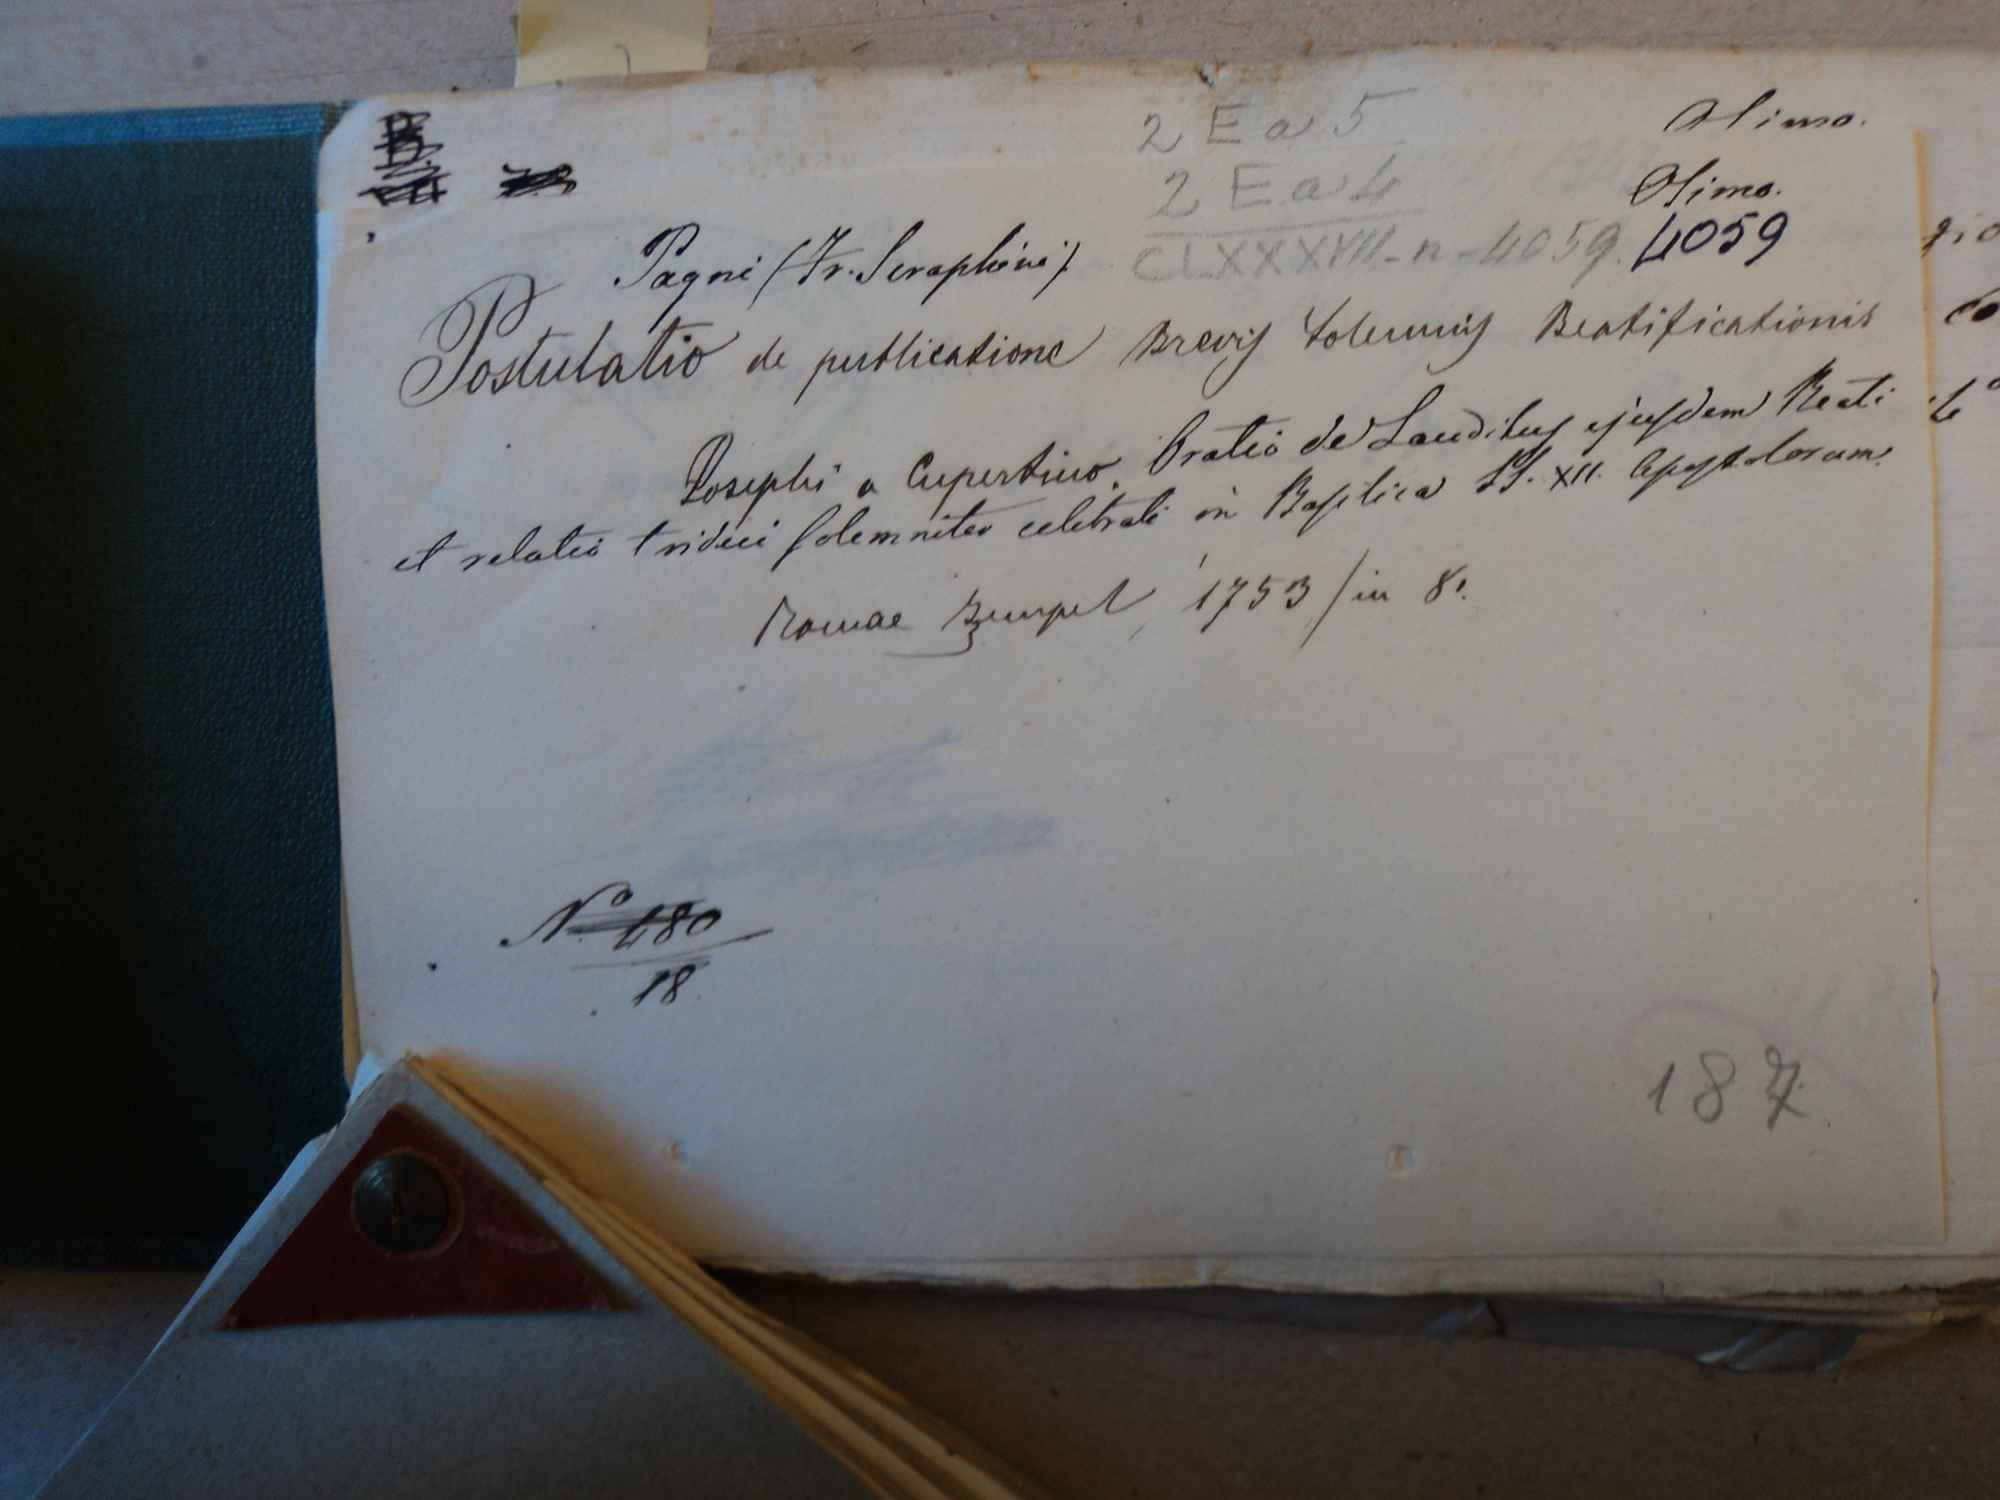 2 E a 5
Osimo.
2 E a 4
Osimo.
CLXXXVII-n-4059. 4059
Pagni (Fr. Seraphini)
Postulatio de publicatione Brevis Solemnis Beatificationis
Josephi a Cupertino. Oratio de Laudibus ejusdem Beati
et relatio tridui solemniter celebrati in Basilica SS. XII. Apostolorum.
Romae 1753 / in 8º.
Nº 480
18
187